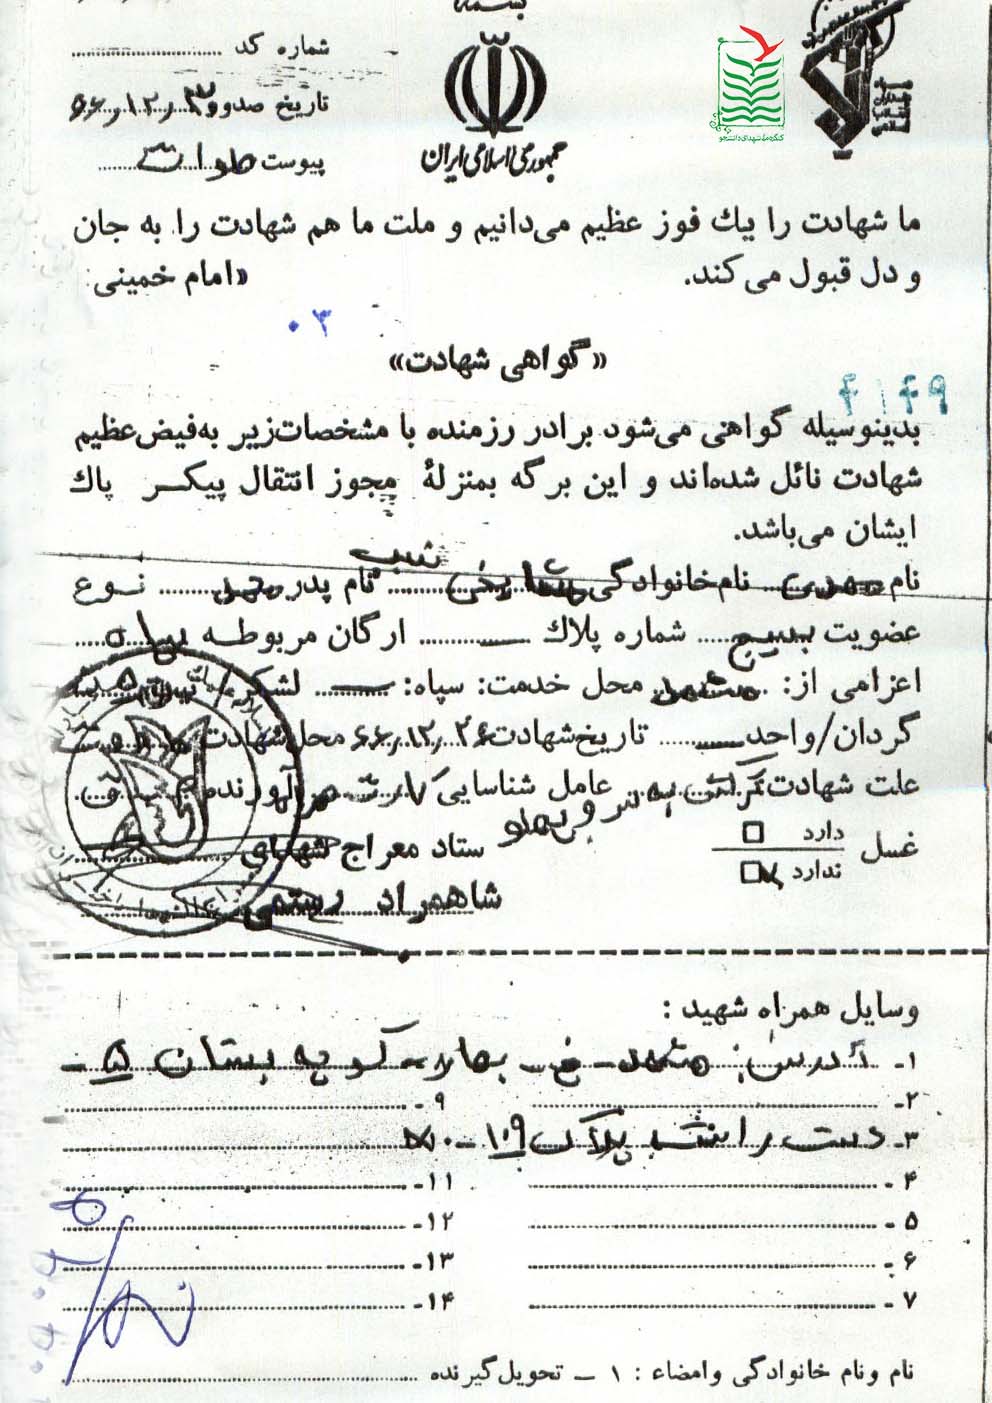 شماره کد
تاریخ صدور ۶۶/۱۲/
پیوست
جمهوری اسلامی ایران
کنگره ملی شهدای دانشجو
ما شهادت را یك فوز عظیم می‌دانیم و ملت ما هم شهادت را به جان
و دل قبول می‌کند. «امام خمینی
۰۳
«گواهی شهادت»
۴۱۴۹
بدینوسیله گواهی می‌شود برادر رزمنده با مشخصات زیر به فیض عظیم
شهادت نائل شده‌اند و این برگه بمنزلهٔ مجوز انتقال پیکر پاك
ایشان می‌باشد.
نام مهدی نام خانوادگی نام پدر محمد نوع
عضویت بسیج شماره پلاك ارگان مربوطه سپاه
اعزامی از: مشهد محل خدمت: سپاه: لشکر/
گردان/واحد تاریخ شهادت ۶۶/۱۲/۲۶ محل شهادت
علت شهادت ترکش به سر و پهلو عامل شناسایی کارت آورنده
غسل دارد
ندارد
ستاد معراج شهدای
شاهمراد رستمی
وسایل همراه شهید :
۱- آدرس: مشهد - خ - بهار - کوچه بستان ۵ -
۲- ۹-
۳- دست راست پلاک ۱۰۹ - ۱۰
۴- ۱۱-
۵- ۱۲-
۶- ۱۳-
۷- ۱۴-
نام و نام خانوادگی و امضاء : ۱ – تحویل گیرنده